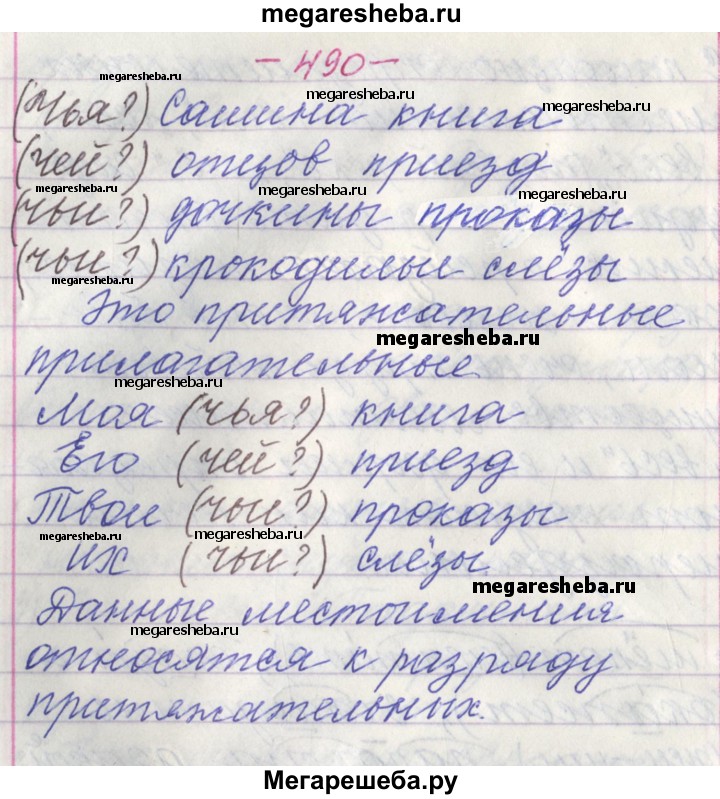 megaresheba.ru
- 490 -
megaresheba.ru
megaresheba.ru
(Чья?) Сашина книга
megaresheba.ru
(чей?) отцов приезд
megaresheba.ru
megaresheba.ru
megaresheba.ru
(чьи?) дочкины проказы
(чьи?) крокодильи слёзы
megaresheba.ru
Это притяжательные
megaresheba.ru
прилагательные.
megaresheba.ru
Моя (чья?) книга
Его (чей?) приезд
Твои (чьи?) проказы
megaresheba.ru
megaresheba.ru
их (чьи?) слёзы.
megaresheba.ru
Данные местоимения
megaresheba.ru
относятся к разряду
притяжательных.
Мегарешеба.ру